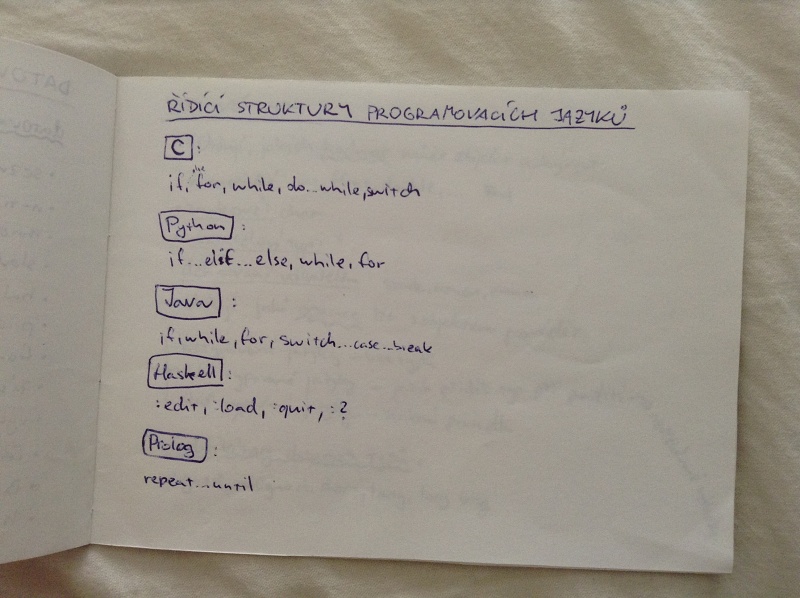 ŘÍDÍCÍ STRUKTURY PROGRAMOVACÍCH JAZYKŮ
C:
if, for, while, do...while, switch
Python:
if...elif...else, while, for
Java:
if, while, for, switch...case...break
Haskell:
:edit, :load, :quit, :?
Prolog:
repeat...until